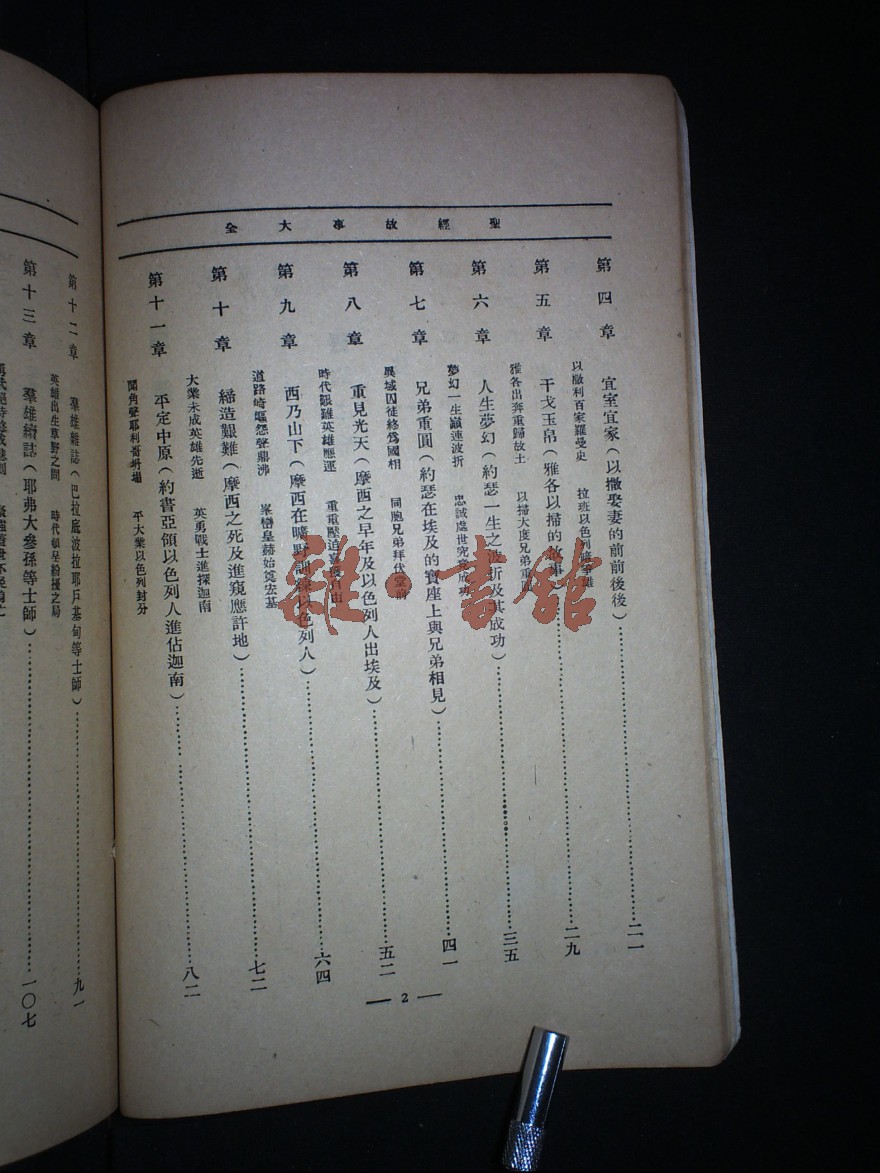 聖經故事大全
第四章 宜室宜家（以撒娶妻的前前後後）……二一
以撒利百家羅曼史 拉班以色列
第五章 干戈玉帛（雅各以掃的故事）……二九
雅各出奔重歸故土 以掃大度兄弟重
第六章 人生夢幻（約瑟一生之波折及其成功）……三五
夢幻一生巔連波折 忠誠處世究竟成功
第七章 兄弟重圓（約瑟在埃及的寶座上與兄弟相見）……四一
異域囚徒終爲國相 同胞兄弟拜伏堂前
第八章 重見光天（摩西之早年及以色列人出埃及）……五二
時代艱難英雄應運 重重壓迫自由
第九章 西乃山下（摩西在曠野訓練以色列人）……六四
道路崎嶇怨聲鼎沸 峯巒皇赫始奠宏基
第十章 締造艱難（摩西之死及進窺應許地）……七二
大業未成英雄先逝 英勇戰士進探迦南
第十一章 平定中原（約書亞領以色列人進佔迦南）……八二
聞角聲耶利哥坍塌 平大業以色列封分
— 2 —
第十二章 羣雄雜誌（巴拉底波拉耶戶基甸等士師）……九一
英雄出生草野之間 時代頓呈紛擾之局
第十三章 羣雄續誌（耶弗大參孫等士師）……一〇七
雜·書館